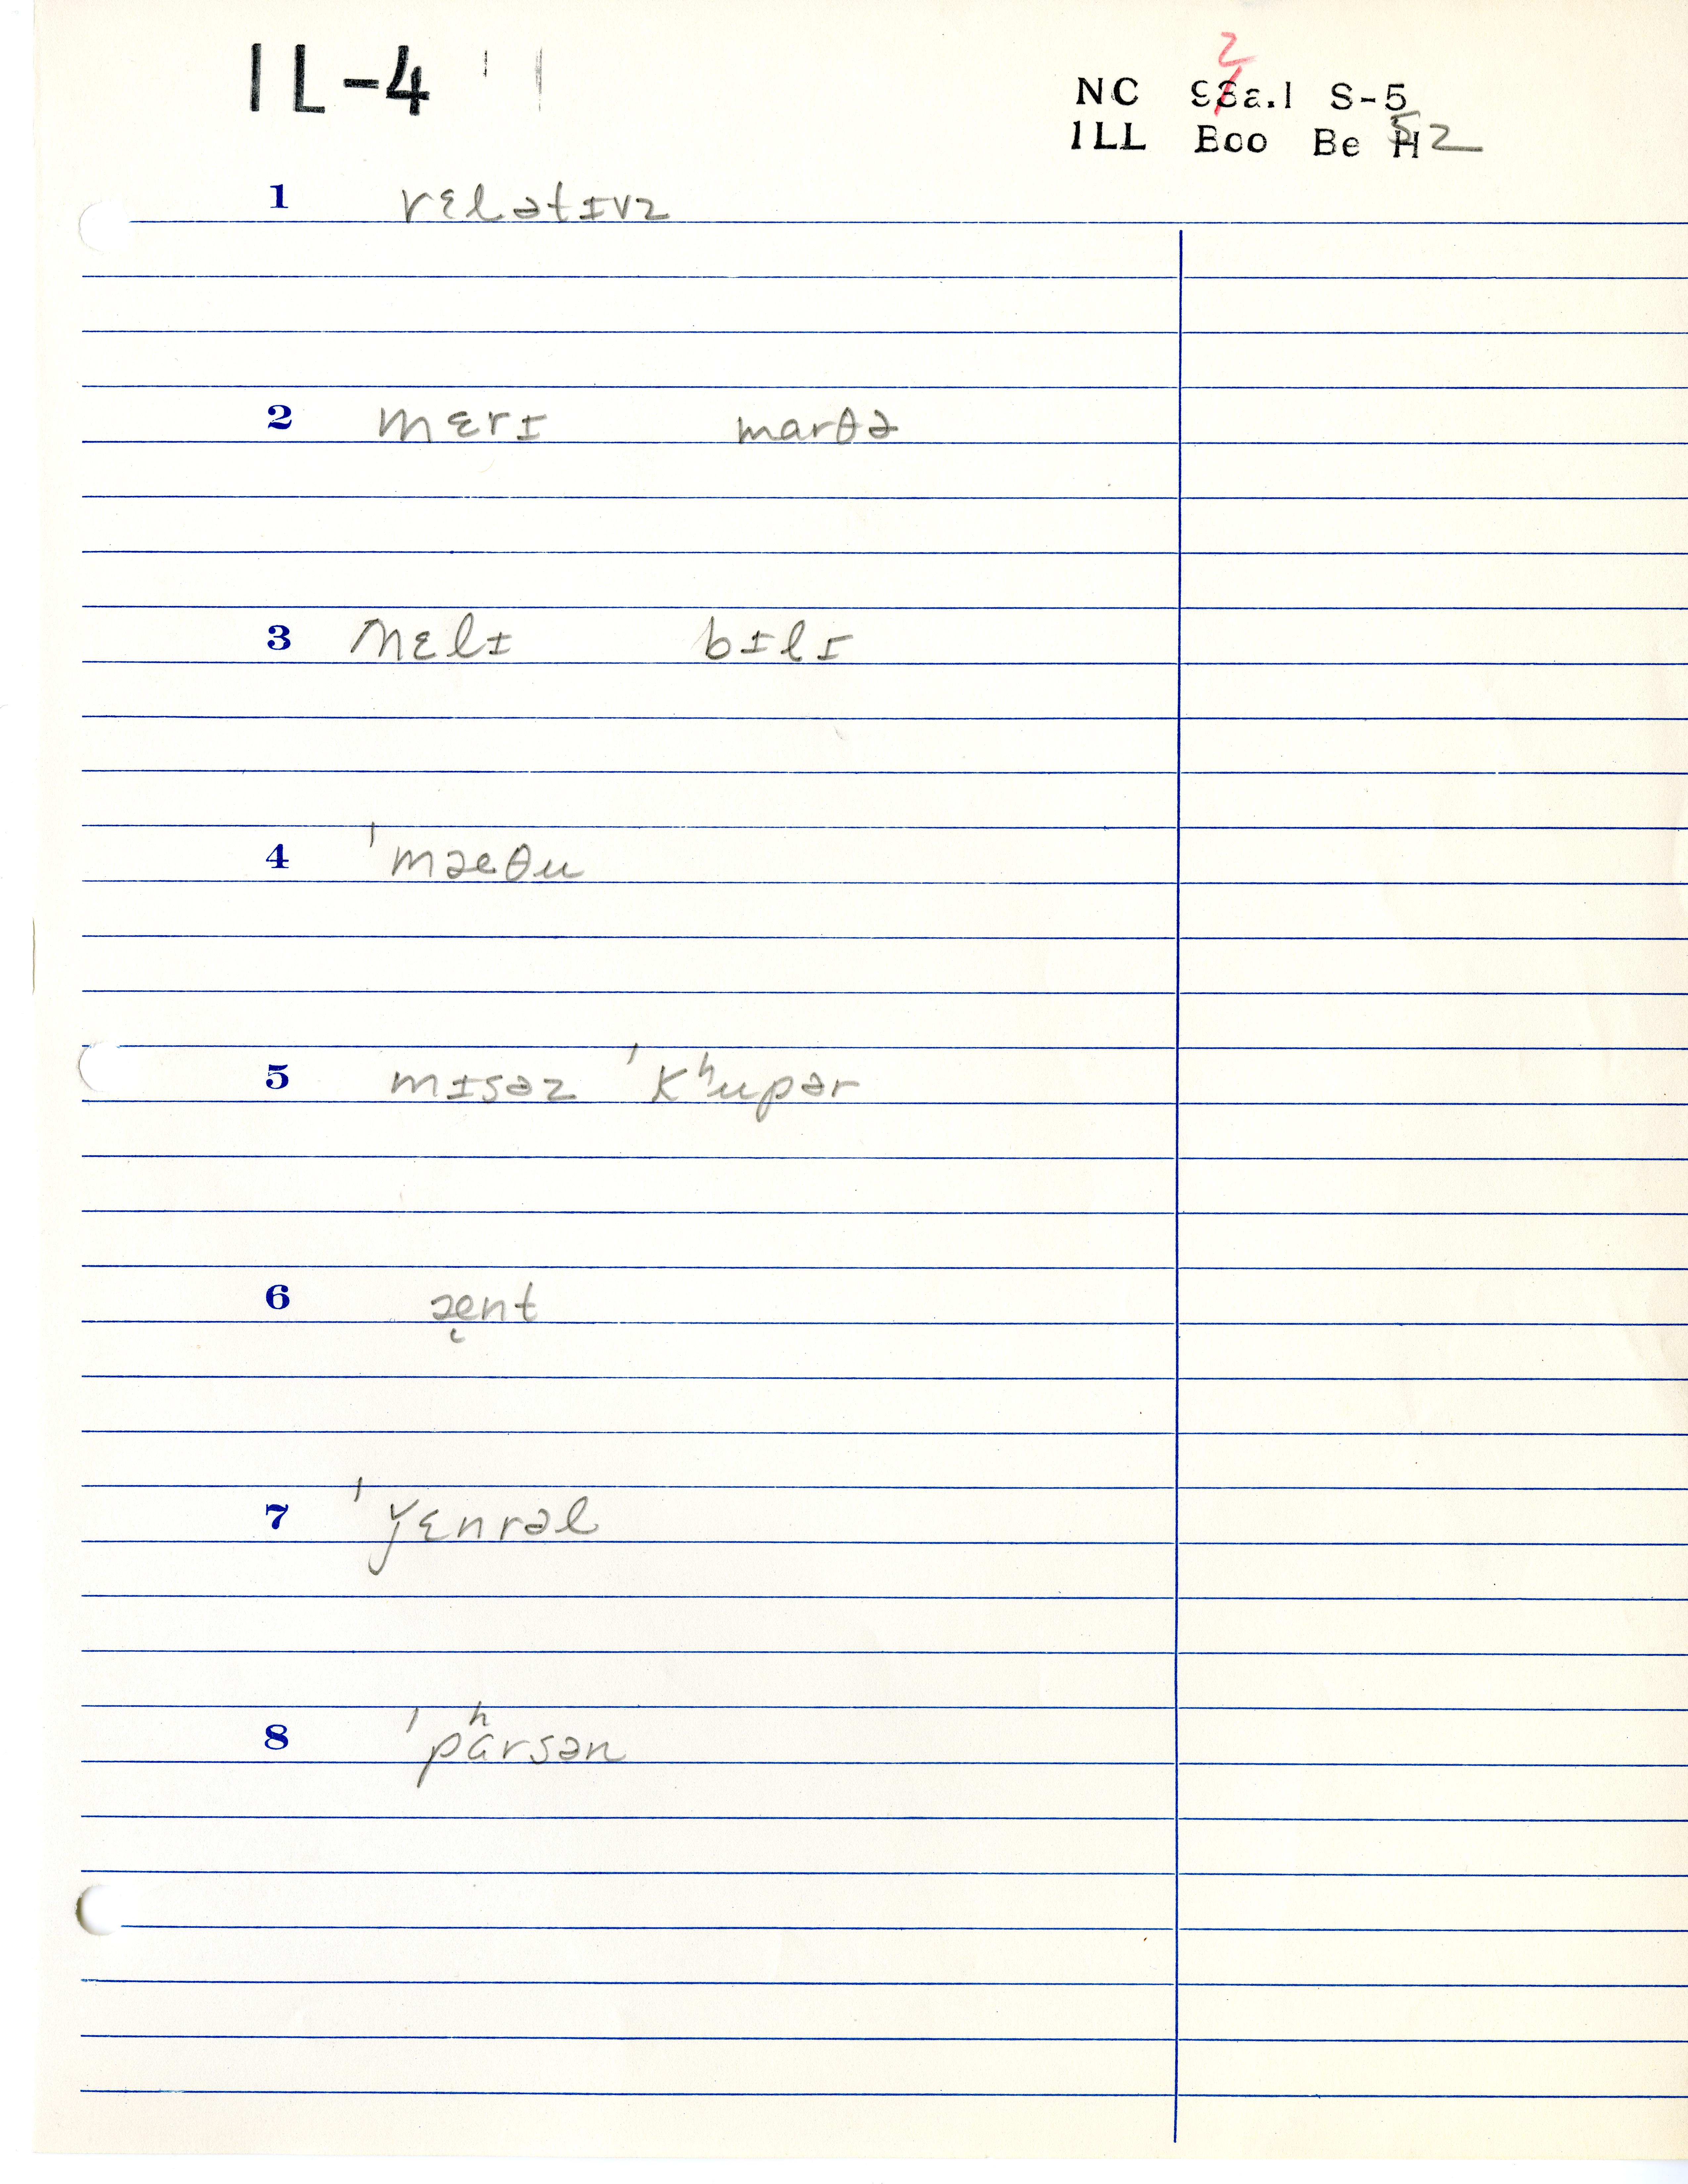 IL-4
NC 93a.1 S-5
2
ILL Boo Be H 52
1 rɛlətɪvz
2 mɛrɪ marθə
3 nɛlɪ bɪlɪ
4 ˈmæθu
5 mɪsəz ˈkʰupər
6 æ̨nt
7 ˈǰɛnrəl
8 ˈpʰarsən